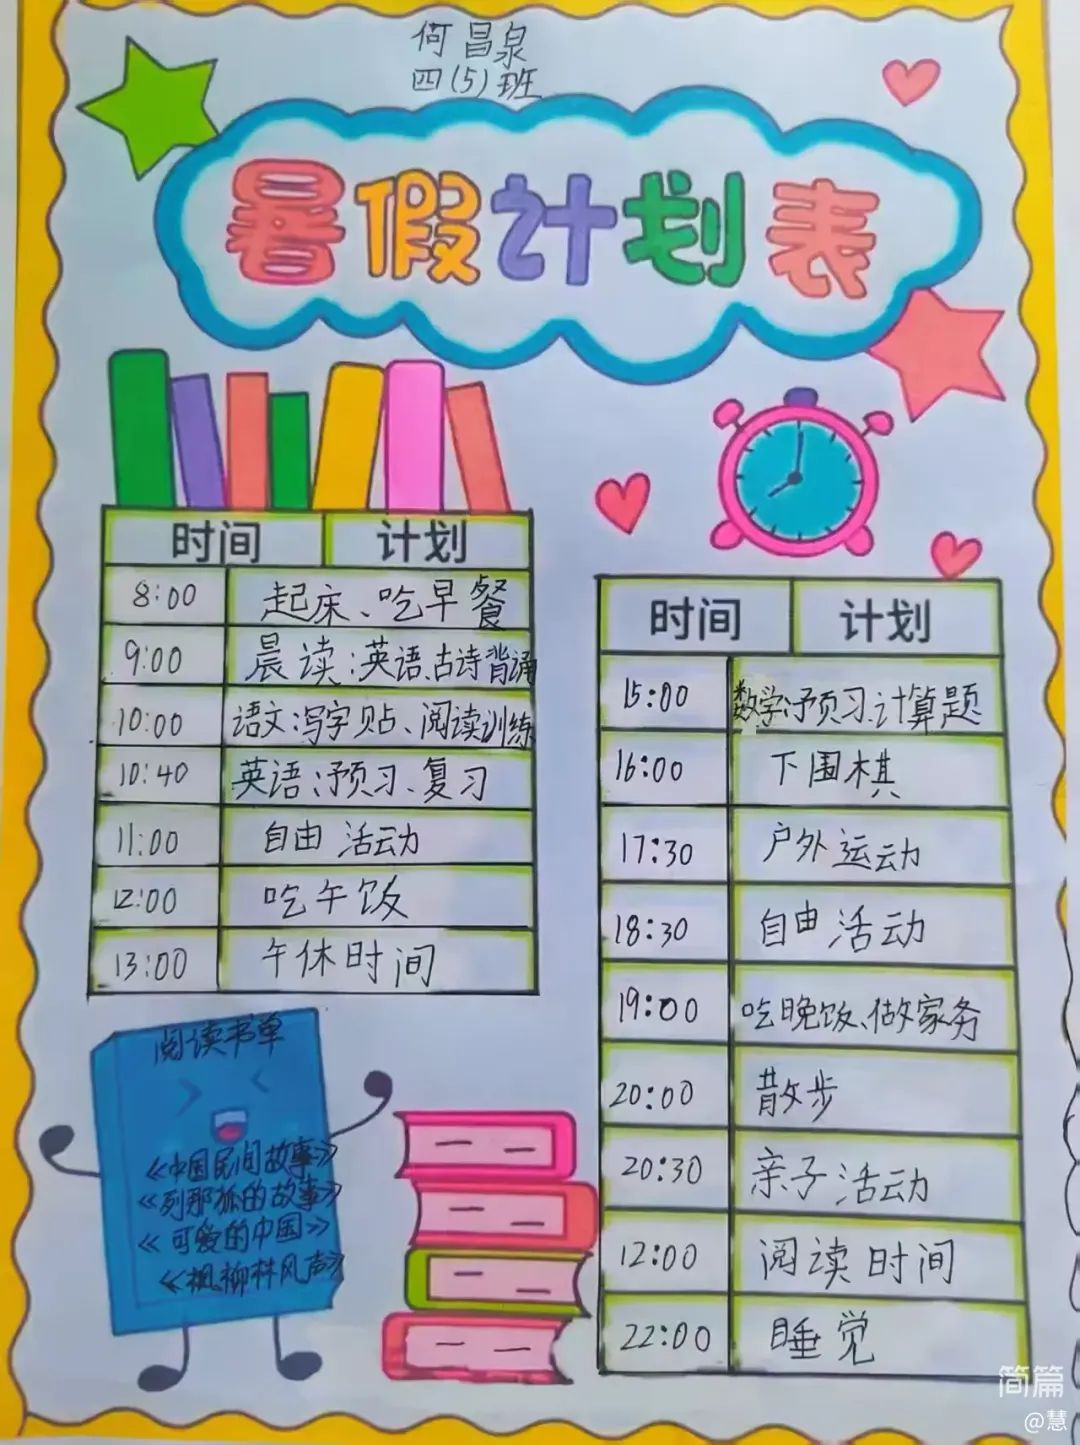 何昌泉
四(5)班
暑假计划表
时间 计划
8:00 起床、吃早餐
9:00 晨读:英语、古诗背诵
10:00 语文:写字贴、阅读训练
10:40 英语:预习、复习
11:00 自由活动
12:00 吃午饭
13:00 午休时间
时间 计划
15:00 数学:预习、计算题
16:00 下围棋
17:30 户外运动
18:30 自由活动
19:00 吃晚饭、做家务
20:00 散步
20:30 亲子活动
12:00 阅读时间
22:00 睡觉
阅读书单
《中国民间故事》
《列那狐的故事》
《可爱的中国》
《枫柳林风声》
简篇
@慧